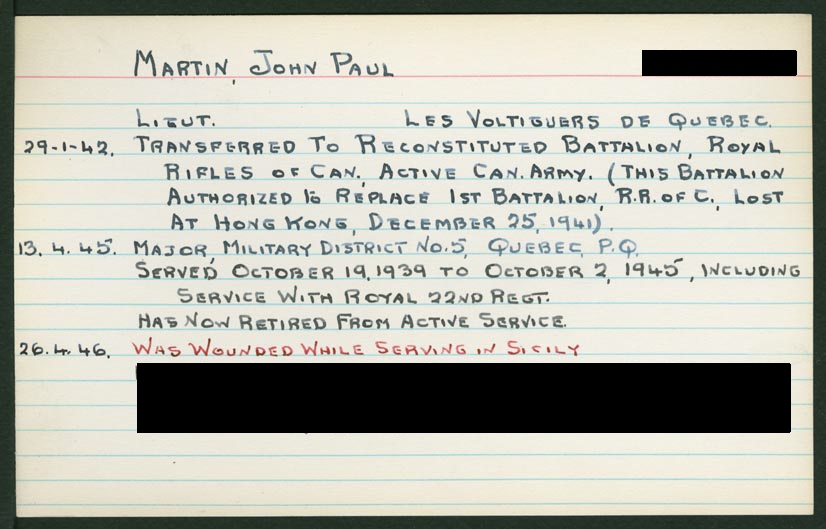 MARTIN, JOHN PAUL
LIEUT. LES VOLTIGUERS DE QUEBEC.
29-1-42. TRANSFERRED TO RECONSTITUTED BATTALION, ROYAL
RIFLES OF CAN., ACTIVE CAN. ARMY. (THIS BATTALION
AUTHORIZED TO REPLACE 1ST BATTALION, R.R. OF C., LOST
AT HONG KONG, DECEMBER 25, 1941).
13. 4. 45. MAJOR, MILITARY DISTRICT NO. 5, QUEBEC, P.Q.
SERVED OCTOBER 19, 1939 TO OCTOBER 2, 1945, INCLUDING
SERVICE WITH ROYAL 22ND REGT.
HAS NOW RETIRED FROM ACTIVE SERVICE.
26. 4. 46. WAS WOUNDED WHILE SERVING IN SICILY